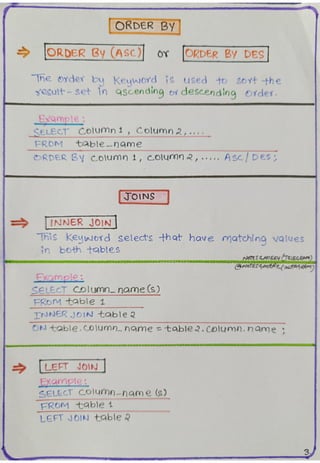 ORDER BY
⇒ ORDER BY (ASC) or ORDER BY DES
The order by Keyword is used to sort the
result-set in ascending or descending order.
Example:
SELECT Column1, Column2,....
FROM table_name
ORDER BY Column1, Column2,..... ASC/DES;
JOINS
⇒ INNER JOIN
This Keyword selects that have matching values
in both tables
Example:
SELECT Column_name(s)
FROM table 1
INNER JOIN table 2
ON table.Column_name = table2.Column.name ;
⇒ LEFT JOIN
Example:
SELECT Column_name (s)
FROM table 1
LEFT JOIN table 2
3